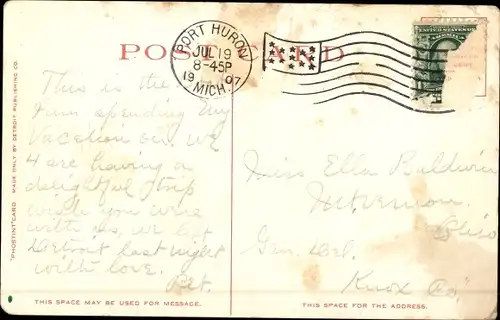 POST CARD
PORT HURON
JUL 19
8-45P
1907
MICH.
This is the
I am spending my
Vacation on, we
4 are having a
delightful trip
wish you were
with us, we left
Detroit last night
with love.
Miss Ella Baldwin
Mt Vernon
Ohio
Gen. Del.
Knox Co.
"PHOSTINT" CARD MADE ONLY BY DETROIT PUBLISHING CO.
THIS SPACE MAY BE USED FOR MESSAGE.
THIS SPACE IS FOR THE ADDRESS.